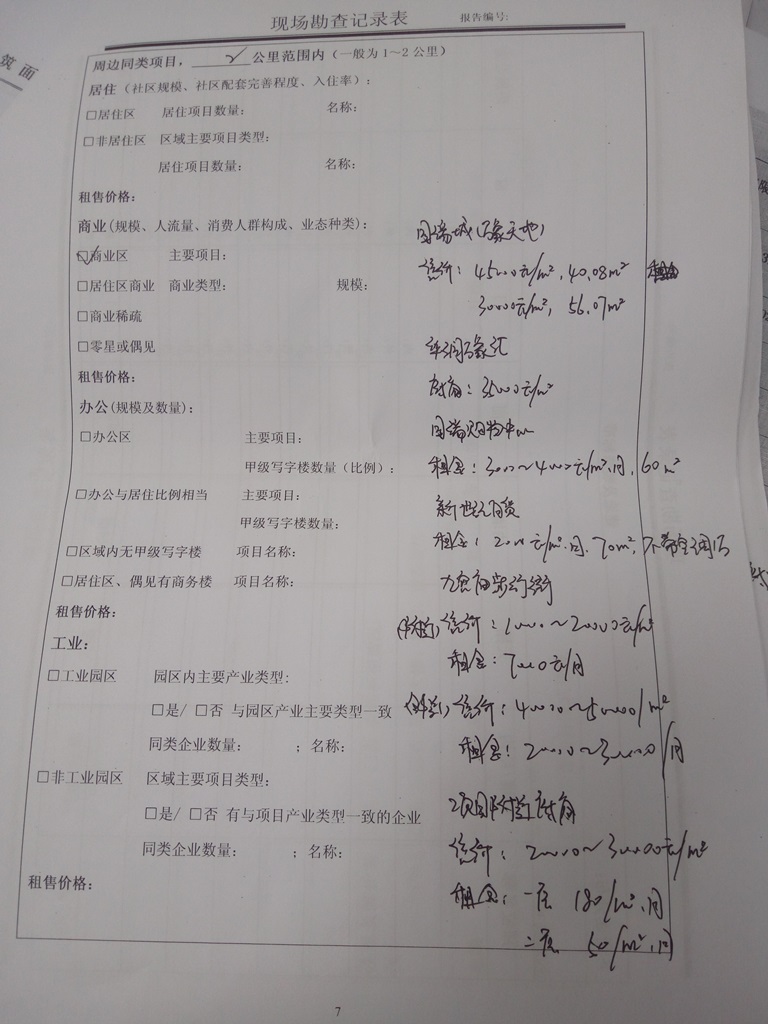 筑面
现场勘查记录表 报告编号:
周边同类项目，2公里范围内（一般为1～2公里）
居住（社区规模、社区配套完善程度、入住率）：
□居住区 居住项目数量： 名称：
□非居住区 区域主要项目类型：
居住项目数量： 名称：
租售价格：
商业(规模、人流量、消费人群构成、业态种类)：
国瑞城(万象天地)
☑商业区 主要项目：
售价：45000元/m²，40.08m²
□居住区商业 商业类型： 规模：
30000元/m²，56.07m²
□商业稀疏
□零星或偶见
华润万象汇
租售价格：
35000元/m²
办公(规模及数量)：
□办公区 主要项目：
国瑞购物中心
甲级写字楼数量（比例）：
租金：3000～4000元/m².月，60m²
□办公与居住比例相当 主要项目：
新世纪百货
甲级写字楼数量：
租金：2000元/m².月，70m²，不带空调
□区域内无甲级写字楼 项目名称：
□居住区、偶见有商务楼 项目名称：
租售价格：
售价：10000～20000元/m²
工业：
租金：7000元/月
□工业园区 园区内主要产业类型:
□是/ □否 与园区产业主要类型一致
售价：40000～50000/m²
同类企业数量： ；名称：
租金：20000～30000/月
□非工业园区 区域主要项目类型：
□是/ □否 有与项目产业类型一致的企业
项目
同类企业数量： ；名称：
售价：20000～30000元/m²
租售价格：
租金：一层 180/m².月
二层 50/m².月
7